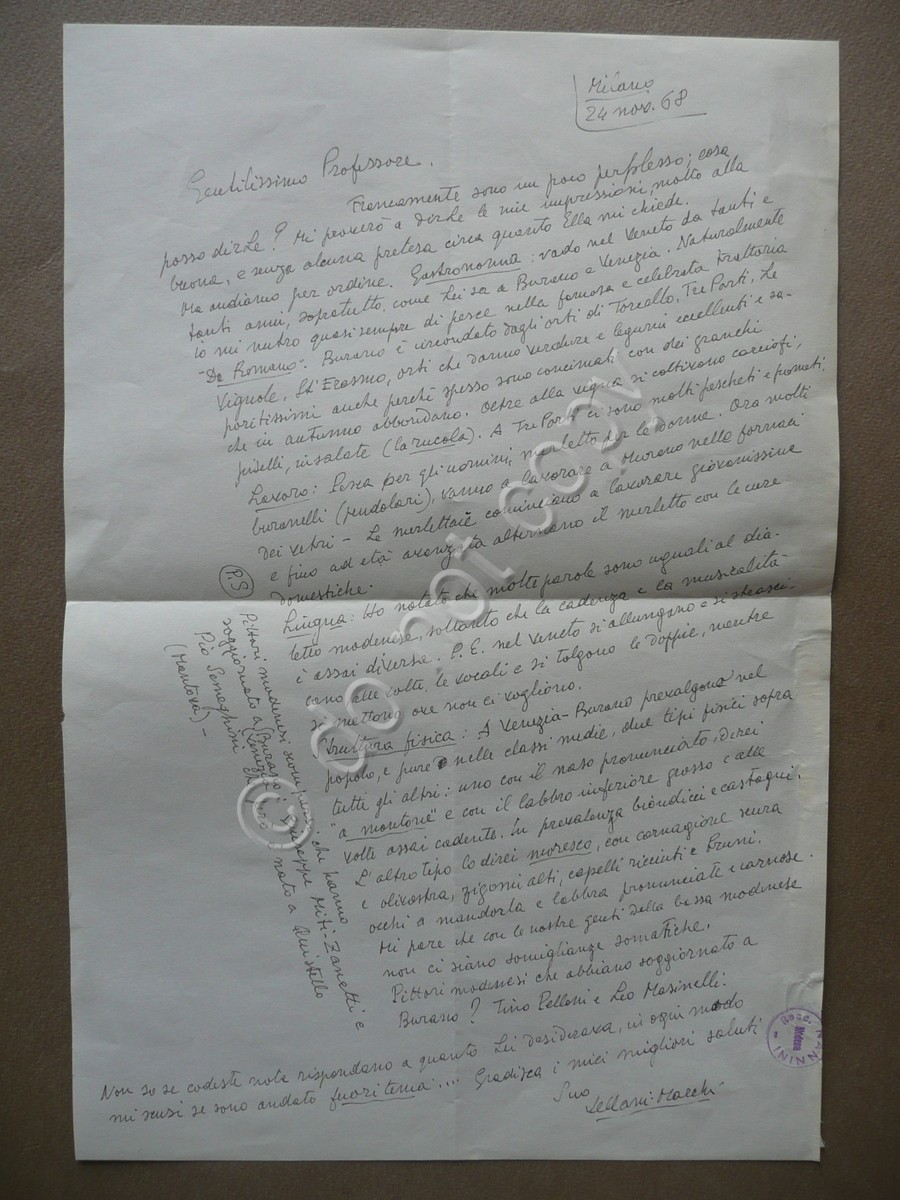 Milano
24 nov. 68
Gentilissimo Professore.
Francamente sono un poco perplesso; cosa
posso dirLe? Mi proverò a dirLe le mie impressioni, molto alla
buona, e senza alcuna pretesa circa quanto Ella mi chiede.
Ma andiamo per ordine. Gastronomia: vado nel Veneto da tanti e
tanti anni, sopratutto, come Lei sa a Burano e Venezia. Naturalmente
io mi nutro quasi sempre di pesce nella famosa e celebrata trattoria
"Da Romano". Burano è circondato dagli orti di Torcello, Tre Porti, Le
Vignole, St'Erasmo, orti che danno verdure e legumi eccellenti e sa-
poritissimi anche perché spesso sono concimati con dei granchi
che in autunno abbondano. Oltre alla vigna si coltivano carciofi,
piselli, insalate (la rucola). A Tre Porti ci sono molti pescheti e frumeti.
Lavoro: Pesca per gli uomini, merletto per le donne. Ora molti
buranelli (pendolari), vanno a lavorare a Murano nelle fornaci
dei vetri - Le merlettaie cominciano a lavorare giovanissime
e fino ad età avanzata alternano il merletto con le cure
domestiche.
Lingua: Ho notato che molte parole sono uguali al dia-
letto modenese, soltanto che la cadenza e la musicalità
è assai diversa. P.E. nel Veneto si allungano e si strasci-
cano alle volte le vocali e si tolgono le doppie, mentre
si mettono ove non ci vogliono.
Struttura fisica: A Venezia-Burano prevalgono nel
popolo, e pure nelle classi medie, due tipi fisici sopra
tutti gli altri: uno con il naso pronunciato, direi
"a montone" e con il labbro inferiore grosso e alle
volte assai cadente. In prevalenza biondicci e castagni.
L'altro tipo lo direi moresco, con carnagione scura
e olivastra, zigomi alti, capelli ricciuti e bruni,
occhi a mandorla e labbra pronunciate e carnose.
Mi pare che con le nostre genti della bassa modenese
non ci siano somiglianze somatiche.
Pittori modenesi che abbiano soggiornato a
Burano? Tino Pelloni e Leo Masinelli.
Non so se codeste note rispondano a quanto Lei desiderava, in ogni modo
mi scusi se sono andato fuori tema.... Gradisca i miei migliori saluti
Suo
P.S
Pittori modenesi scomparsi che hanno
soggiornato a Burano: Giuseppe Miti-Zanetti e
Pio Semeghini che però è nato a Quistello
(Mantova) -
Modena
NANNINI
© do not copy